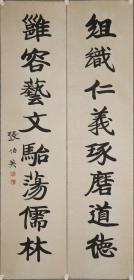 組織仁義琢磨道德
雖容藝文駘蕩儒林
張伯英